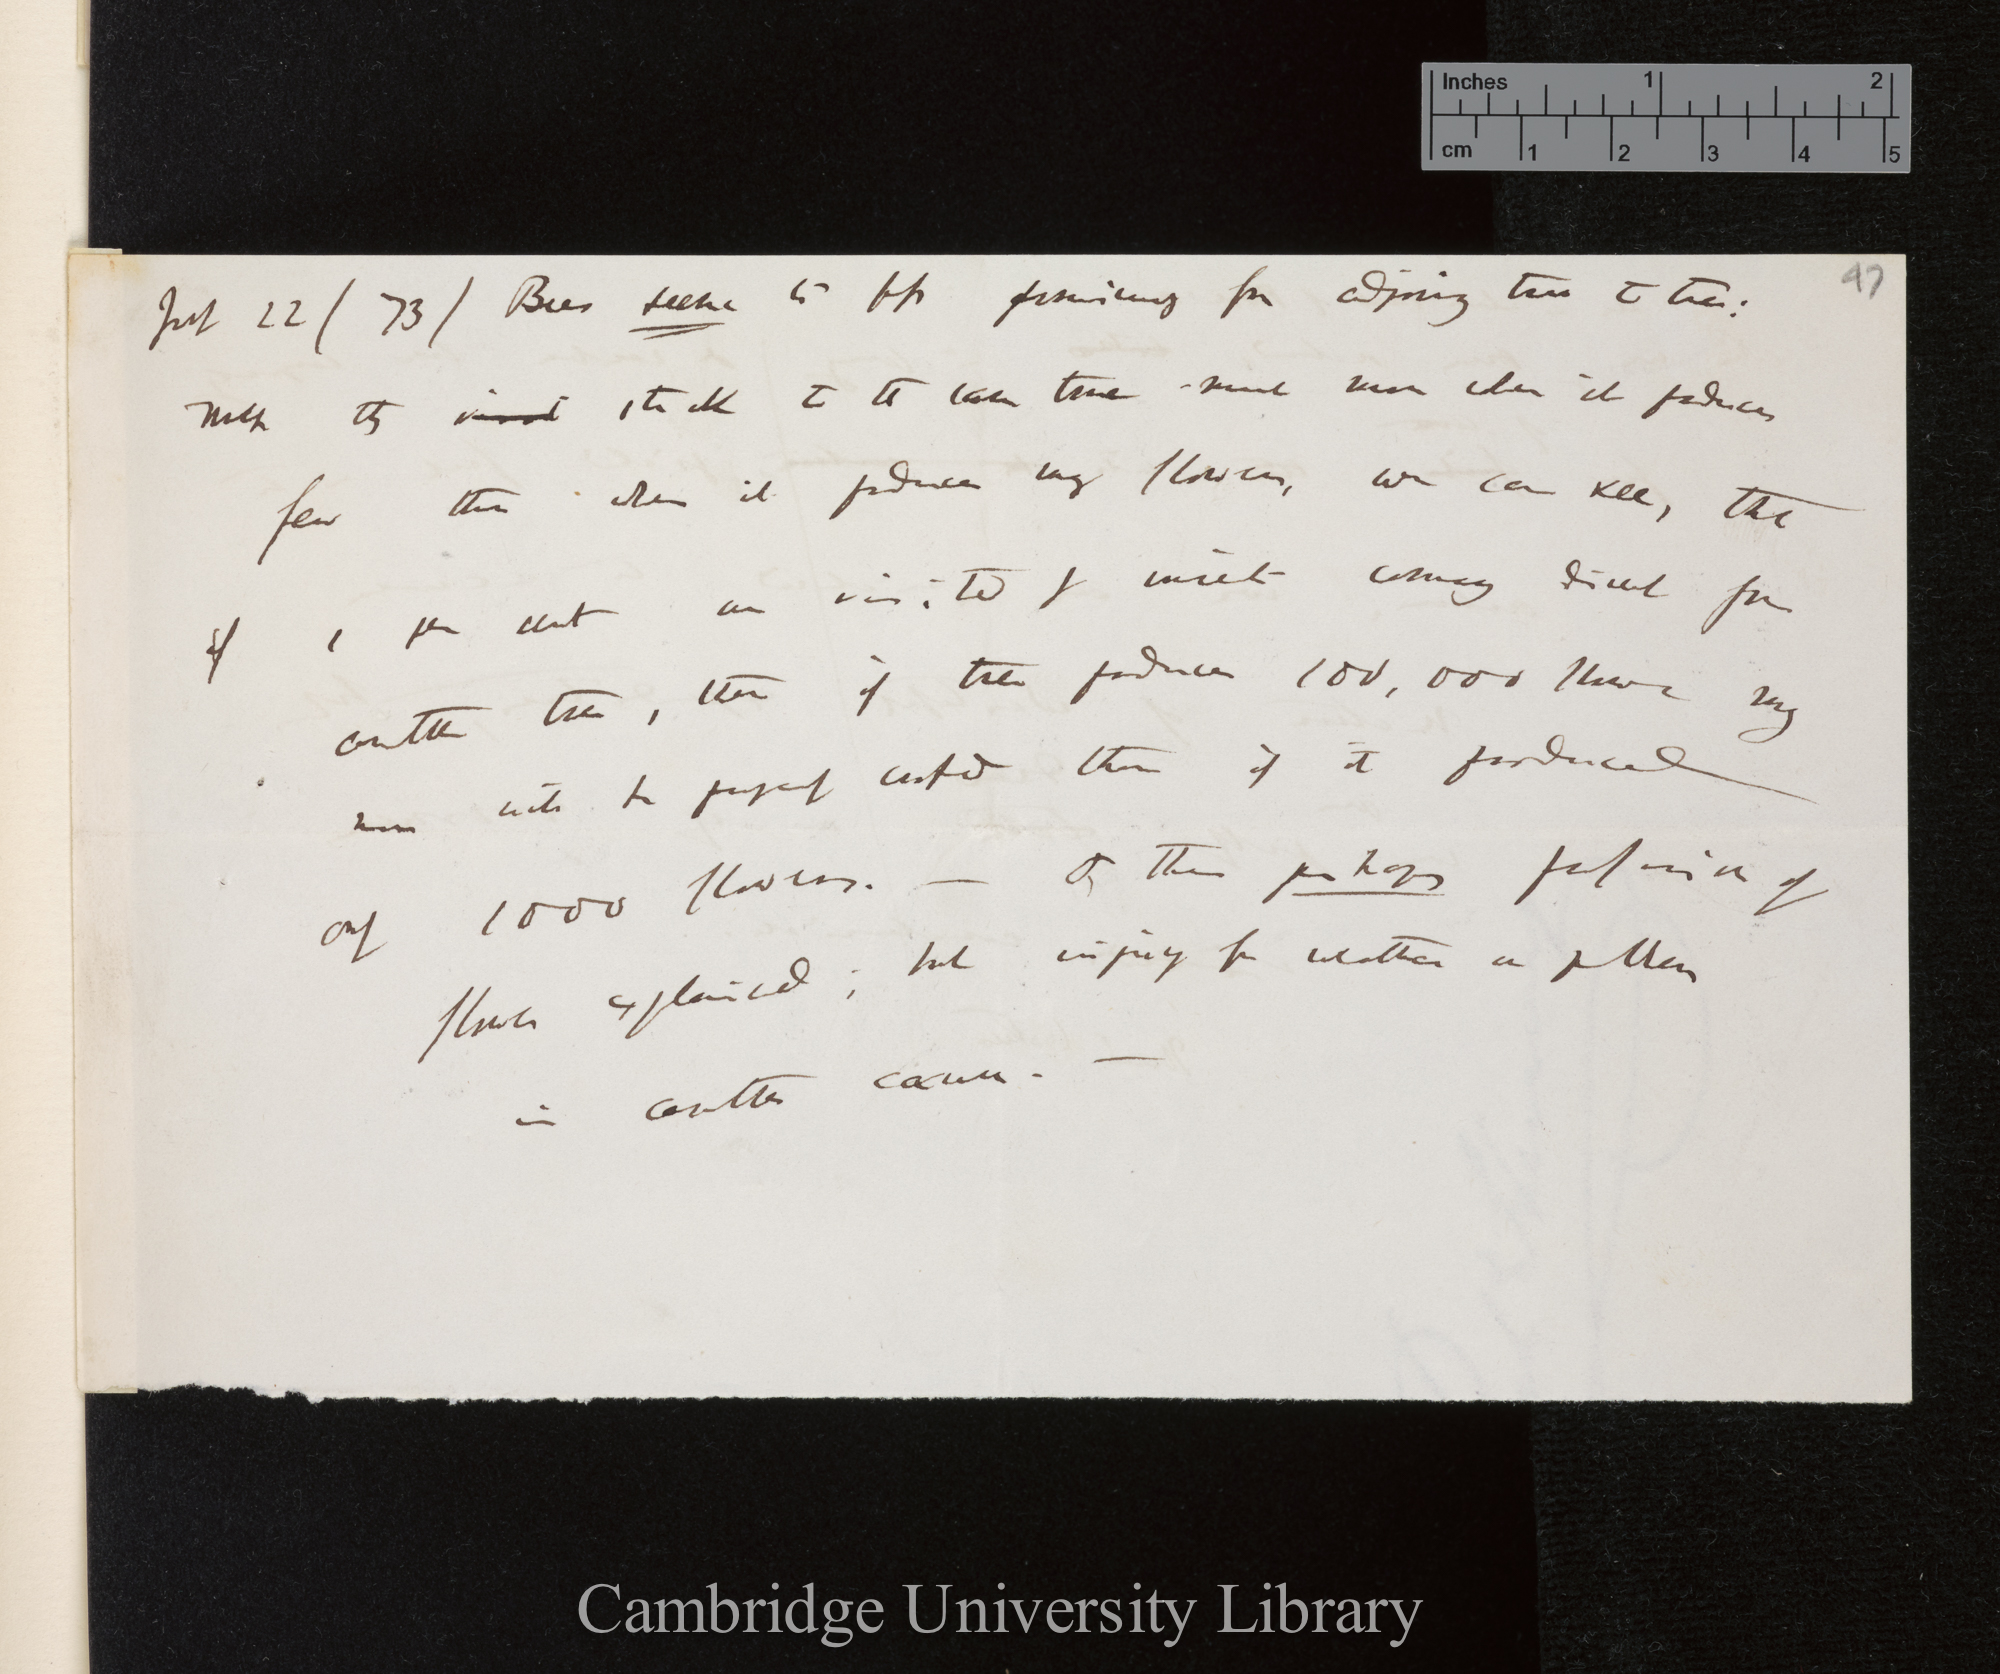 Inches 1 2
cm 1 2 3 4 5
47
July 22 / 73 / Bees seem to fly promiscuously from adjoining tree to tree:
they visit stick to the same tree much more when it produces
few than when it produces many flowers, we can see, that
if 1 per cent are visited by insects coming direct from
another tree, then if tree produces 100,000 flowers many
more will be crossed than if it produced
only 1000 flowers. — Is this perhaps profusion of
flowers explained; but injury from weather on pollen
in another cause. —
Cambridge University Library